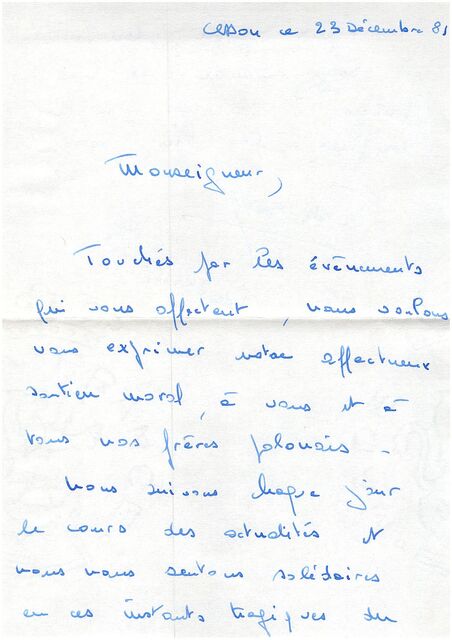 Cesson ce 23 Décembre 81
Monseigneur,
Touchés par les évènements
qui vous affectent, nous voulons
vous exprimer notre affectueux
soutien moral, à vous et à
tous vos frères polonais -
Nous suivons chaque jour
le cours des actualités et
nous nous sentons solidaires
en ces instants tragiques du